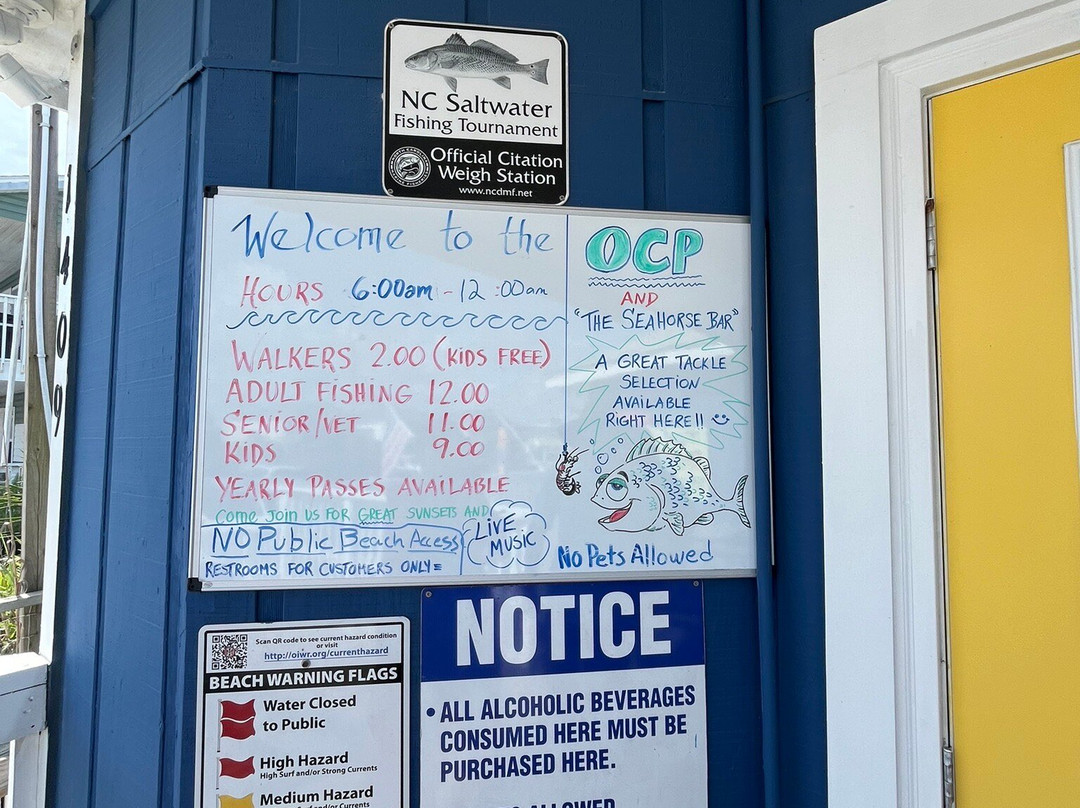 NC Saltwater
Fishing Tournament
Official Citation
Weigh Station
www.ncdmf.net
Welcome to the
HOURS 6:00am - 12:00am
WALKERS 2.00 (KIDS FREE)
ADULT FISHING 12.00
SENIOR/VET 11.00
KIDS 9.00
YEARLY PASSES AVAILABLE
COME JOIN US FOR GREAT SUNSETS AND
LIVE
MUSIC
NO Public Beach Access
RESTROOMS FOR CUSTOMERS ONLY
OCP
AND
"THE SEAHORSE BAR"
A GREAT TACKLE
SELECTION
AVAILABLE
RIGHT HERE!!
No Pets Allowed
1409
Scan QR code to see current hazard condition
or visit
http://oiwr.org/currenthazard
BEACH WARNING FLAGS
Water Closed
to Public
High Hazard
High Surf and/or Strong Currents
Medium Hazard
and/or Currents
NOTICE
• ALL ALCOHOLIC BEVERAGES
CONSUMED HERE MUST BE
PURCHASED HERE.
ALLOWED